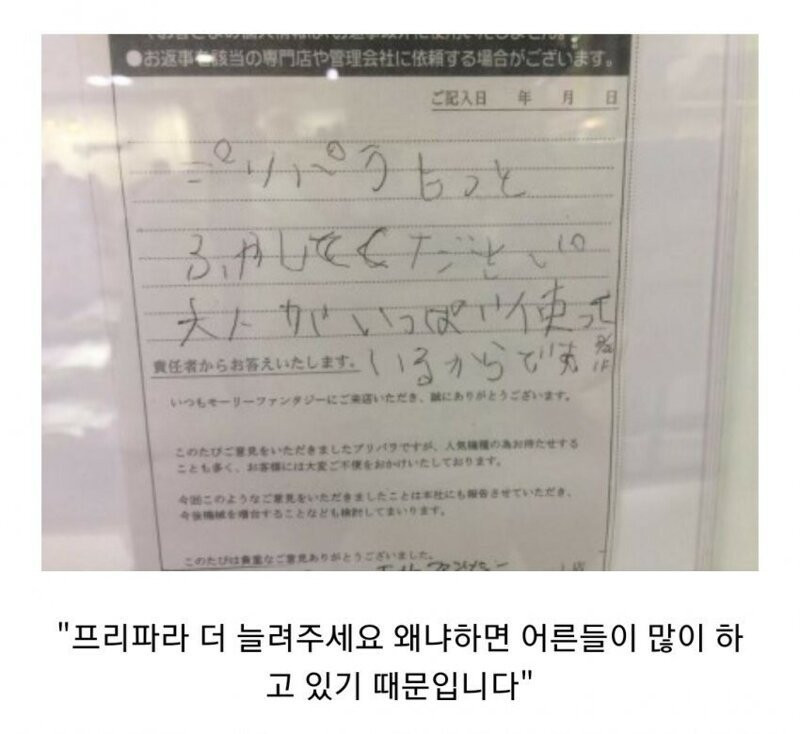 ●お返事を該当の専門店や管理会社に依頼する場合がございます。
ご記入日 年 月 日
プリパラもっと
ふやしてください
大人がいっぱい使って
責任者からお答えいたします。
いるからです
いつもモーリーファンタジーにご来店いただき、誠にありがとうございます。
このたびご意見をいただきましたプリパラですが、人気機種の為お待たせする
ことも多く、お客様には大変ご不便をおかけいたしております。
今回このようなご意見をいただきましたことは本社にも報告させていただき、
今後機械を増台することなども検討してまいります。
このたびは貴重なご意見ありがとうございました。
"프리파라 더 늘려주세요 왜냐하면 어른들이 많이 하
고 있기 때문입니다"